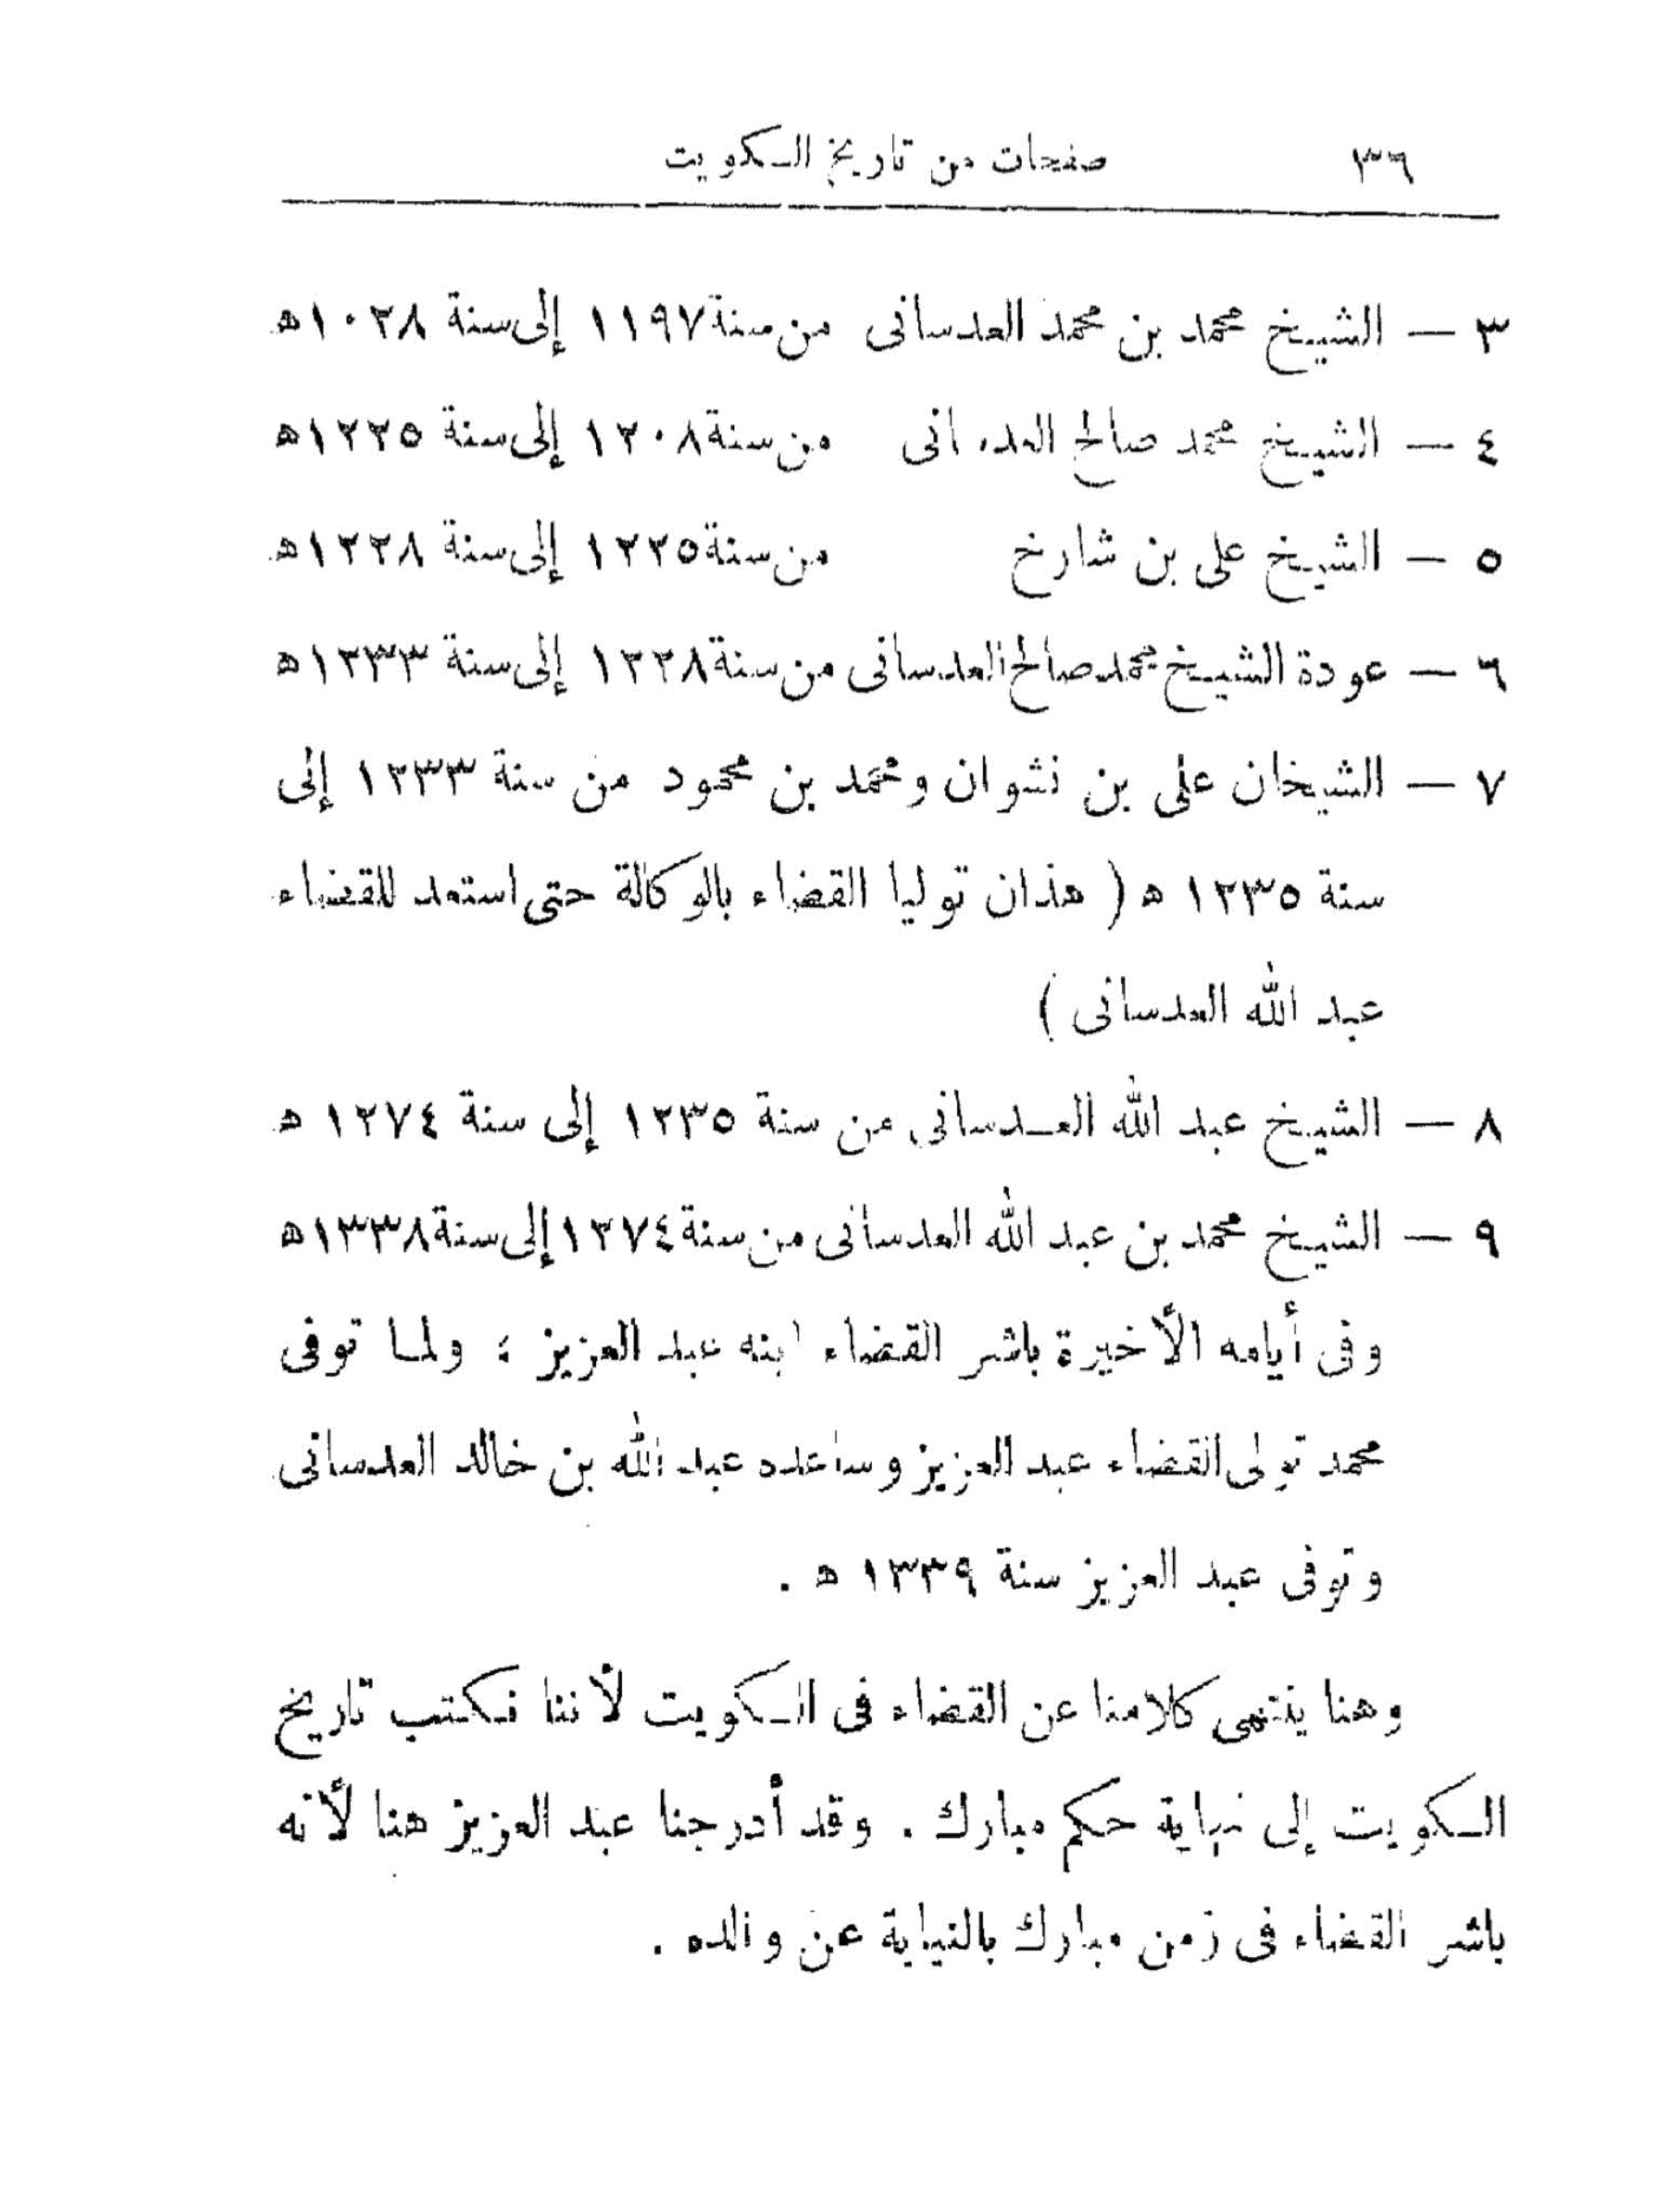 ٣٦ صفحات من تاريخ الكويت
٣ — الشيخ محمد بن محمد العدسانى من سنة ١١٩٧ إلى سنة ١٠٢٨ه
٤ — الشيخ محمد صالح العدسانى من سنة ١٢٠٨ إلى سنة ١٢٢٥ه
٥ — الشيخ على بن شارخ من سنة ١٢٢٥ إلى سنة ١٢٢٨ه
٦ — عودة الشيخ محمد صالح العدسانى من سنة ١٢٢٨ إلى سنة ١٢٣٣ه
٧ — الشيخان على بن نشوان ومحمد بن محمود من سنة ١٢٣٣ إلى
سنة ١٢٣٥ ه ( هذان توليا القضاء بالوكالة حتى استعد للقضاء
عبد الله العدسانى )
٨ — الشيخ عبد الله العدسانى من سنة ١٢٣٥ إلى سنة ١٢٧٤ ه
٩ — الشيخ محمد بن عبد الله العدسانى من سنة ١٢٧٤ إلى سنة ١٣٣٨ه
وفى أيامه الأخيرة باشر القضاء ابنه عبد العزيز ؛ ولما توفى
محمد تولى القضاء عبد العزيز وساعده عبد الله بن خالد العدسانى
وتوفى عبد العزيز سنة ١٣٣٩ ه .
وهنا ينتهى كلامنا عن القضاء فى الكويت لأننا نكتب تاريخ
الكويت إلى نهاية حكم مبارك . وقد أدرجنا عبد العزيز هنا لأنه
باشر القضاء فى زمن مبارك بالنيابة عن والده .